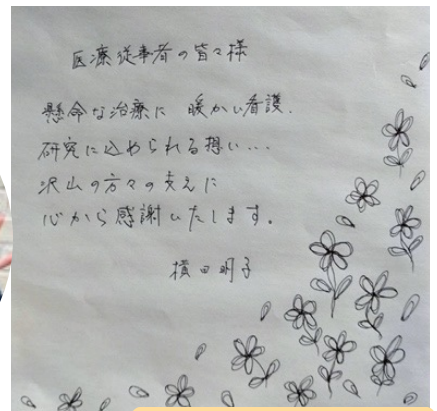 医療従事者の皆々様
懸命な治療に 暖かい看護.
研究に込められる想い...
沢山の方々の支えに
心から感謝いたします。
横田明子